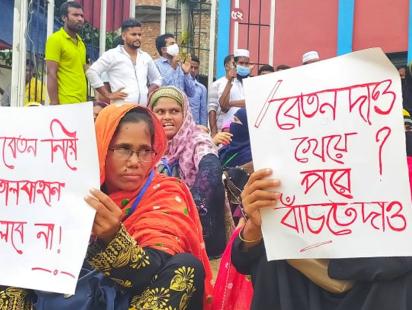 বেতন নিয়ে
ালবাহানা
লবে না!
বেতন দাও
খেয়ে ?
পরে
বাঁচতে দাও